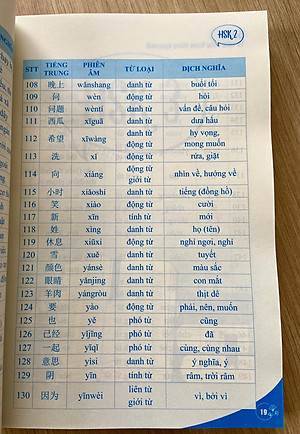 HSK 2
STT TIẾNG TRUNG PHIÊN ÂM TỪ LOẠI DỊCH NGHĨA
108 晚上 wǎnshang danh từ buổi tối
109 问 wèn động từ hỏi
110 问题 wèntí danh từ vấn đề, câu hỏi
111 西瓜 xīguā danh từ dưa hấu
112 希望 xīwàng danh từ động từ hy vọng, mong muốn
113 洗 xǐ động từ rửa, giặt
114 向 xiàng động từ giới từ nhìn về, hướng về
115 小时 xiǎoshí danh từ tiếng (đồng hồ)
116 笑 xiào động từ cười
117 新 xīn tính từ mới
118 姓 xìng danh từ họ (tên)
119 休息 xiūxi động từ nghỉ ngơi, nghỉ
120 雪 xuě danh từ tuyết
121 颜色 yánsè danh từ màu sắc
122 眼睛 yǎnjing danh từ con mắt
123 羊肉 yángròu danh từ thịt dê
124 要 yào động từ phải, nên, muốn
125 也 yě phó từ cũng
126 已经 yǐjīng phó từ đã
127 一起 yīqǐ phó từ cùng, cùng nhau
128 意思 yìsi danh từ ý nghĩa, ý
129 阴 yīn tính từ râm, trời râm
130 因为 yīnwèi liên từ giới từ vì, bởi vì
19